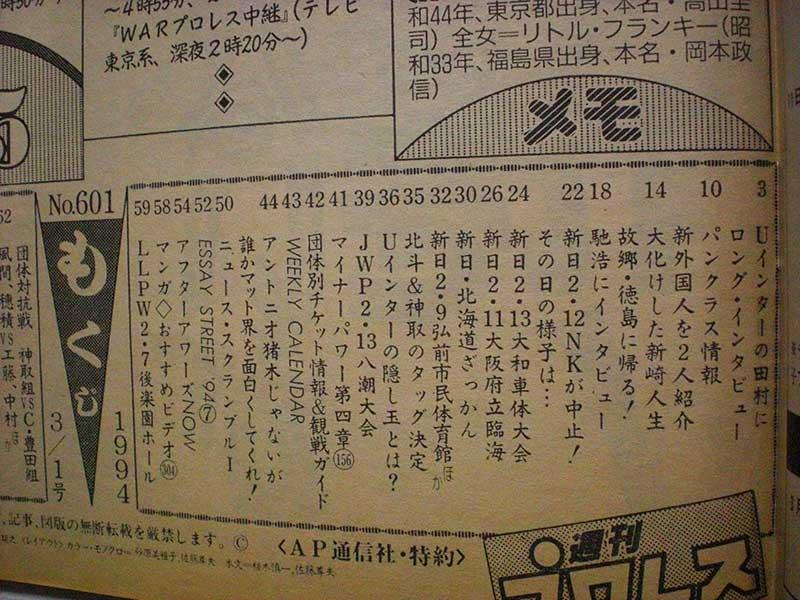 ～4時55分、～
『WARプロレス中継』（テレビ
東京系、深夜2時20分～）
和44年、東京都出身、本名・高山
司）全女＝リトル・フランキー（昭
和33年、福島県出身、本名・岡本政
信）
メモ
3 Uインターの田村に
ロング・インタビュー
10 パンクラス情報
新外国人を2人紹介
14 大化けした新崎人生
故郷・徳島に帰る！
18 馳浩にインタビュー
22 新日2・12NKが中止！
その日の様子は…
24 新日2・13大和車体大会
26 新日2・11大阪府立臨海
30 新日・北海道ざっかん
32 新日2・9弘前市民体育館ほか
35 北斗&神取のタッグ決定
36 Uインターの隠し玉とは？
39 JWP2・13八潮大会
41 マイナーパワー第四章(156)
42 団体別チケット情報&観戦ガイド
43 WEEKLY CALENDAR
44 アントニオ猪木じゃないが
誰かマット界を面白くしてくれ！
50 ニュース・スクランブルⅠ
52 ESSAY STREET '94⑦
54 アフターアワーズNOW
58 マンガ◇おすすめビデオ(304)
59 LLPW2・7後楽園ホール
No.601
もくじ
1994
3/1号
62
団体対抗戦 神取組VSC・豊田組
風間、穂積VS工藤、中村ほか
記事、図版の無断転載を厳禁します。©
〈AP通信社・特約〉
週刊
プロレス